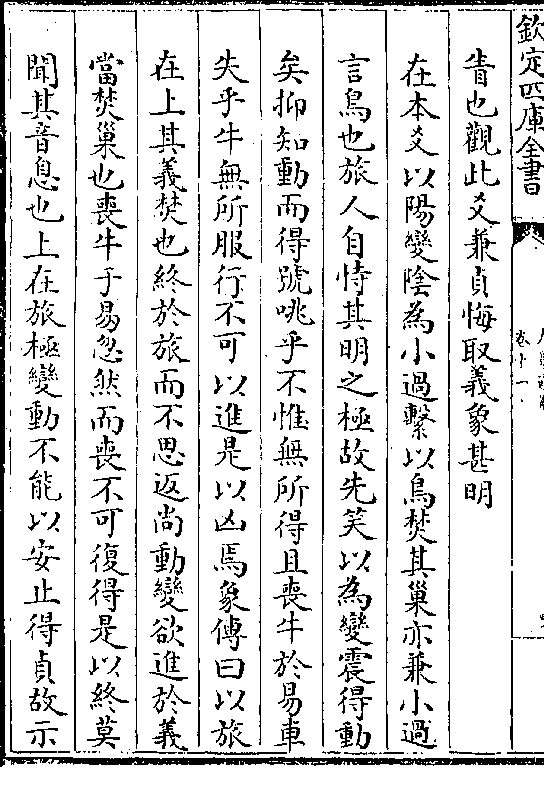 欽定四庫全書
卷十一
眚也觀此爻兼貞悔取義象甚明
在本爻以陽變陰為小過繫以鳥焚其巢亦兼小過
言鳥也旅人自恃其明之極故先笑以為變震得動
矣抑知動而得號咷乎不惟無所得且喪牛於易車
失乎牛無所服行不可以進是以凶焉象傳曰以旅
在上其義焚也終於旅而不思返尚動變欲進於義
當焚巢也喪牛于易忽然而喪不可復得是以終莫
聞其音息也上在旅極變動不能以安止得貞故示